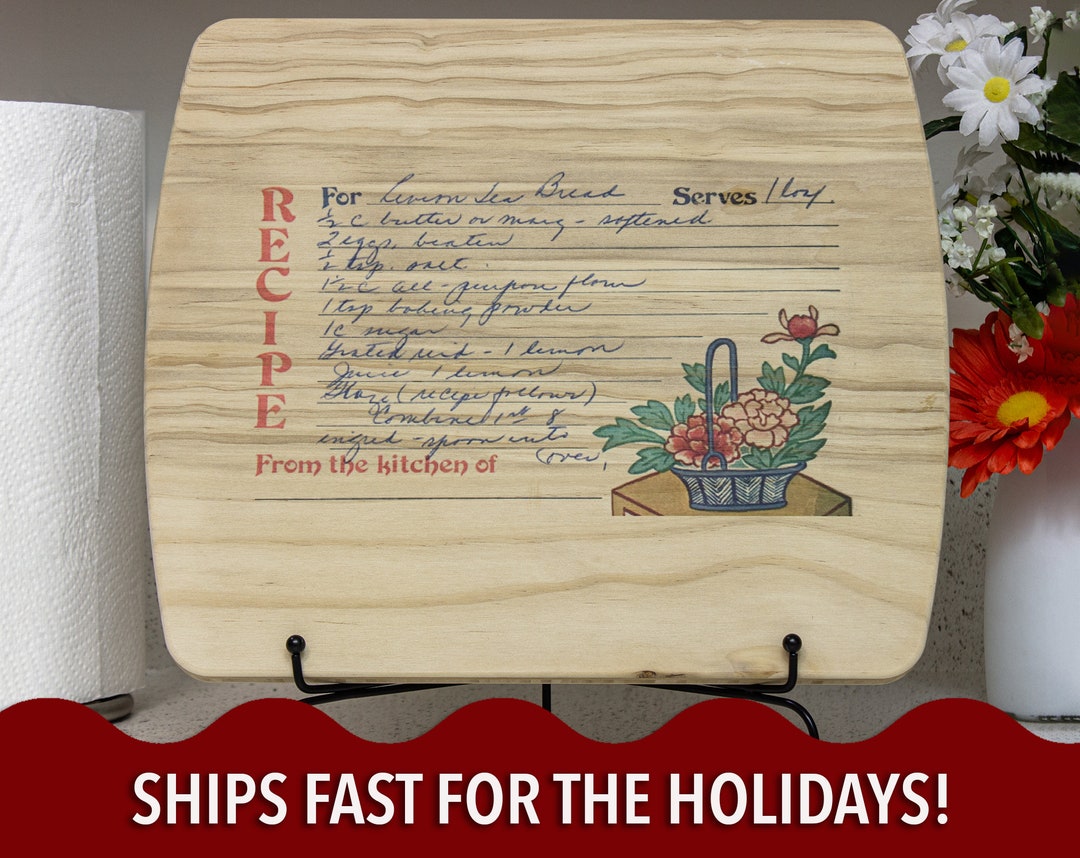 RECIPE
For Lemon Tea Bread Serves 1 loaf.
½ c butter or marg - softened
2 eggs, beaten
½ tsp. salt.
1½ c all-purpose flour
1 tsp baking powder
1c sugar
Grated rind - 1 lemon
Juice 1 lemon
Glaze (recipe follows)
Combine 1st 8
ingred - spoon into
(over)
From the kitchen of
SHIPS FAST FOR THE HOLIDAYS!